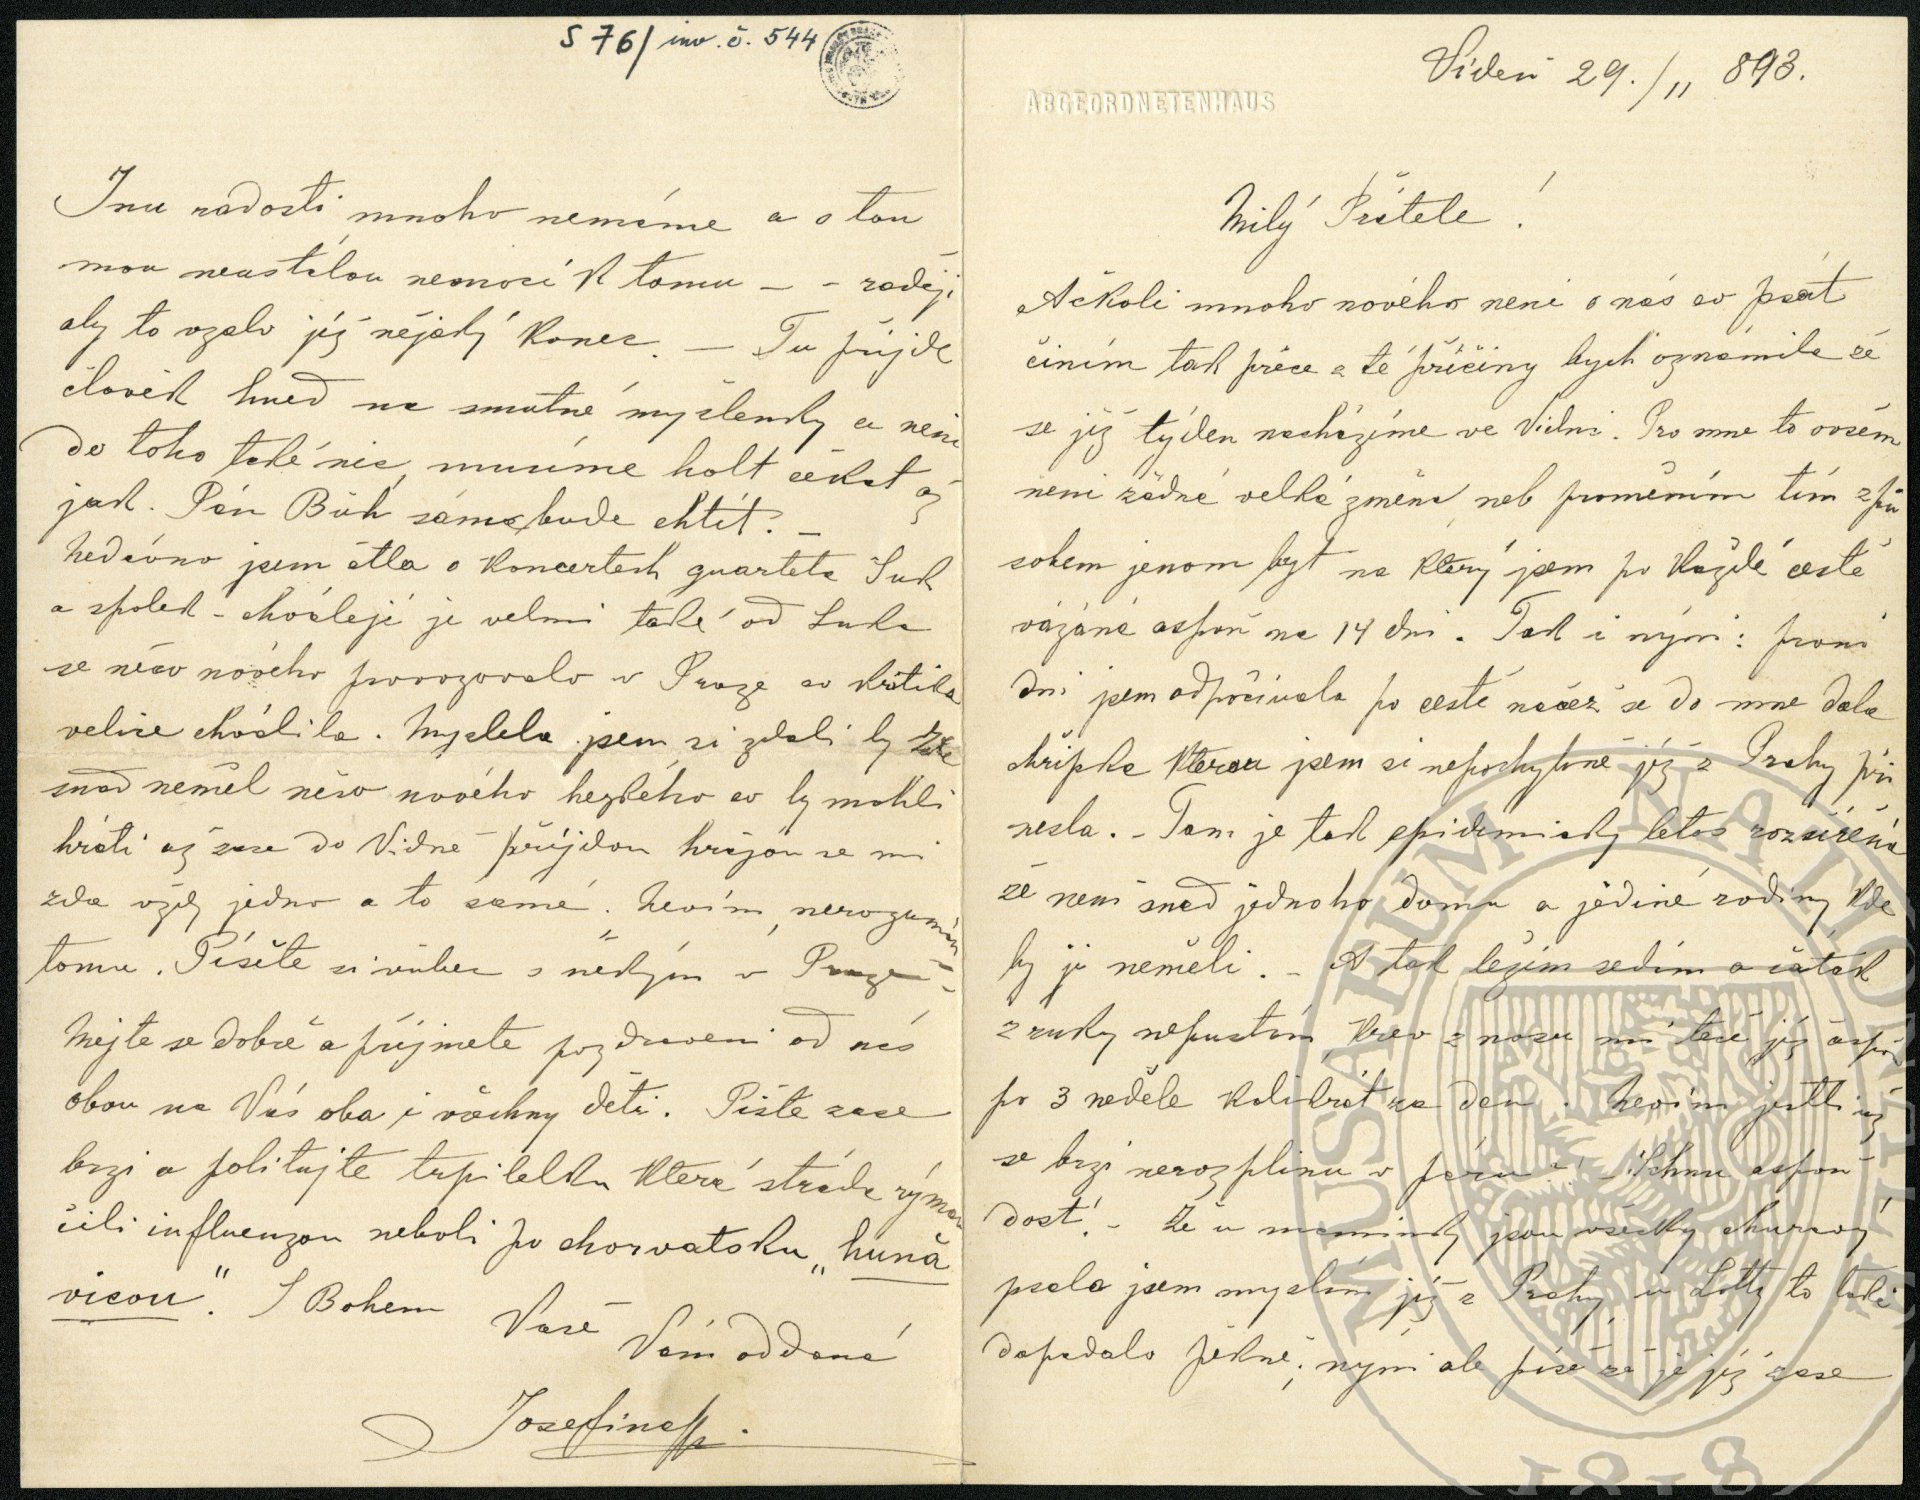 Vídeň 29./11 893.
ABGEORDNETENHAUS
Milý Příteli!
Ačkoli mnoho nového není o nás co psát
činím tak přece a té příčiny bych oznámila že
se jíž týden nacházíme ve Vídni. Pro mne to ovšem
není žádná velká změna neb proměním tím způ
sobem jenom byt na který jsem po každé cestě
vázána aspoň na 14 dní. Tak i nýni: první
dni jsem odpočívala po cestě načež se do mne dala
chřipka kterou jsem si nepochybně jíž z Prahy při
nesla. - Tam je tak epidemicky letos rozšířena
že není snad jednoho domu a jediné rodiny kde
by ji neměli. - A tak ležím sedím a šátek
z ruky nepustím, krev z nosu mi teče jíž aspoň
po 3 neděle kolikrát za den. Nevím jestli už
se brzi nerozplinu v páru - aspoň
dost! - Že u maminky jsou všecky churavý
psala jsem myslím jíž z Prahy, u Lotty to také
dopadalo pěkně; nýni ale píše že je jíž zase
S 76/ inv. č. 544
Inu radosti mnoho nemáme a s tou
mou neustálou nemocí k tomu - - raději
aby to vzalo jíž nějaký konec. - Tu příjde
človék hned na smutné myšlenky a není
do toho také nic, musíme holt čékat až
jak. Pán Bůh sám bude chtít? -
Nedávno jsem čtla o koncertech quarteta Suk
a spolek - chválejí je velmi také od Suka
se něco nového provozovalo v Praze co kritika
velice chválila. Myslela jsem si zdali by
snad neměl něco nového hezkého co by mohli
hráti až zase do Vídně příjdou hrajou se mi
zda vždy jedno a to samé. Nevím, nerozumím
tomu. Píšete si vůbec s někým v Praze -
Mějte se dobře a příjmete pozdravení od nás
obou na Vás oba i všechny děti. Pište zase
brzi a politujte trpitelku která stráda rýmou
čili influenzou neboli po chorvatsku „huna
vicou". S Bohem
Vaše
Vám oddaná
Josefina
MUSAEUM NATIONALE
1818